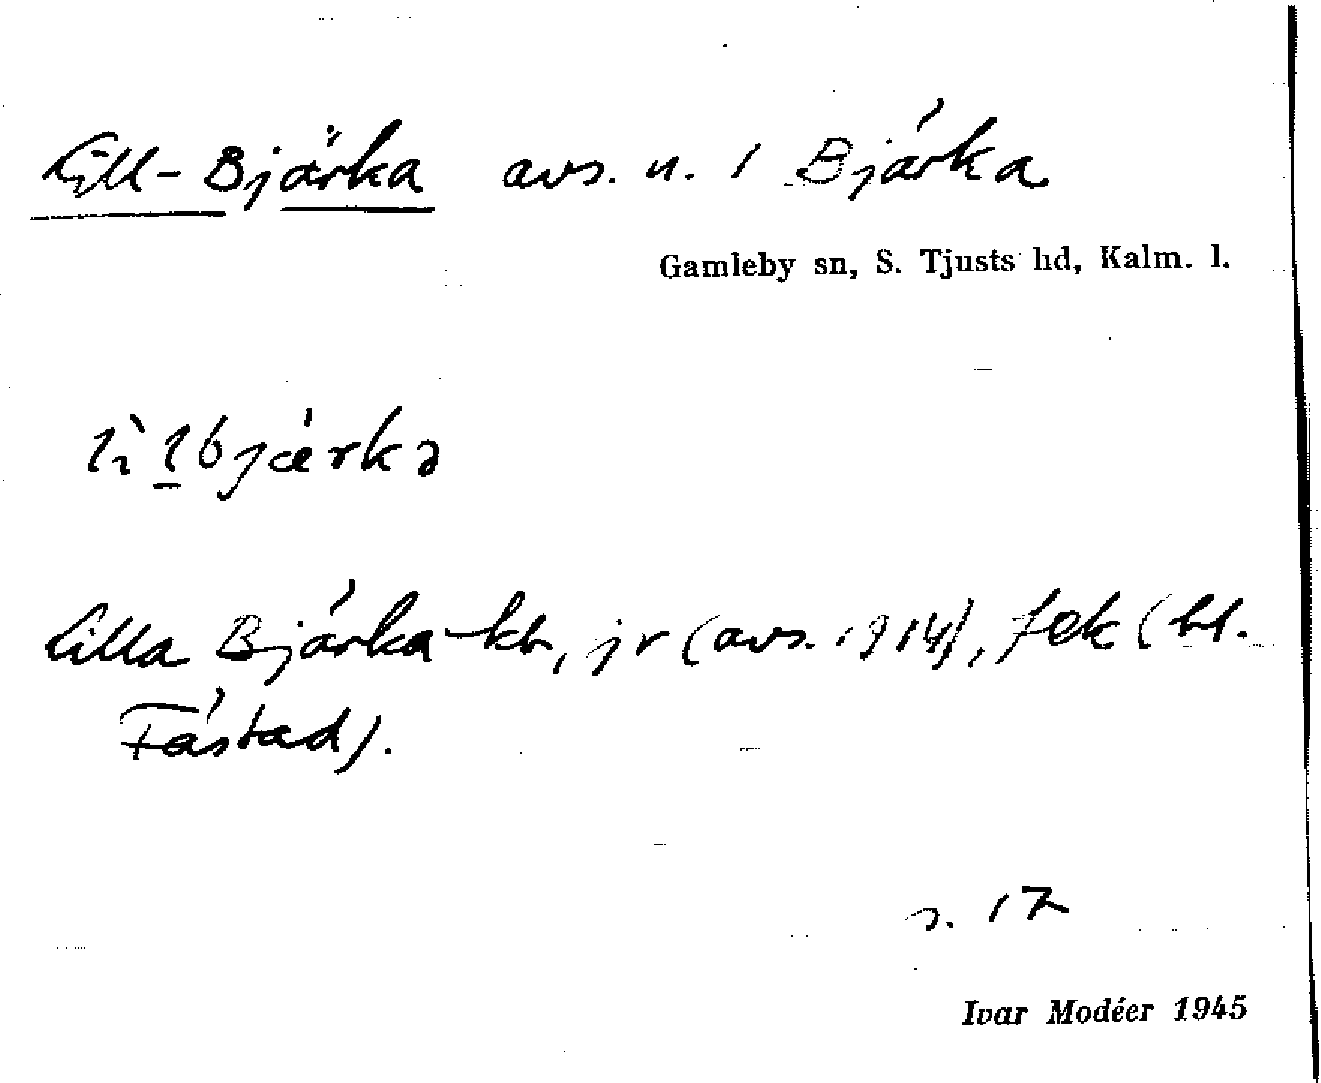 Lill-Bjärka avs. u. 1 Bjärka
Gamleby sn, S. Tjusts hd, Kalm. l.
lìlbjærkə
Lilla Bjärka kb, jr (avs. 1914), fek (bl.
Fästad).
s. 17
Ivar Modéer 1945